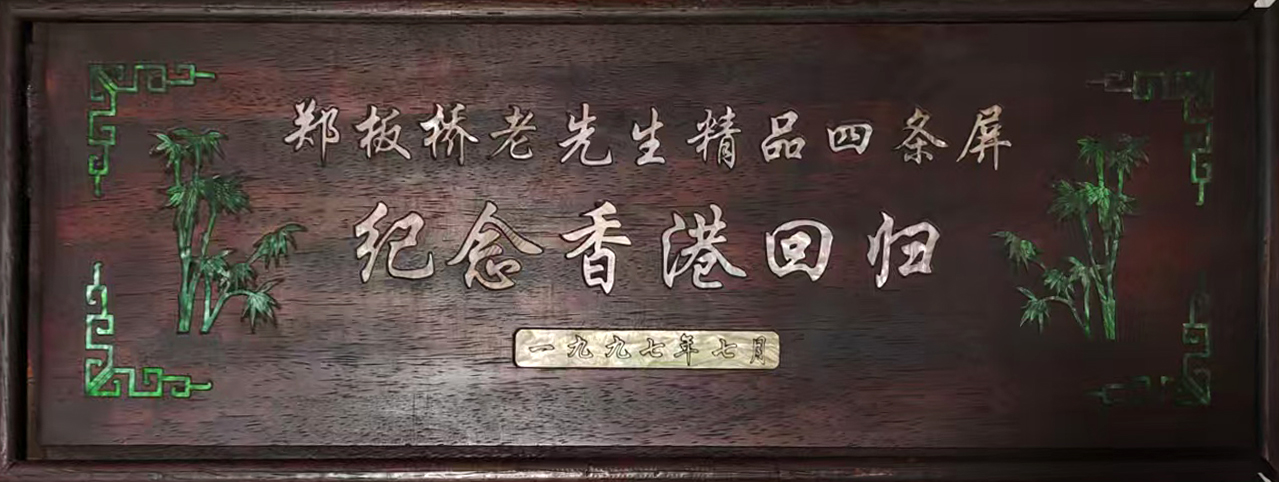 郑板桥老先生精品四条屏
纪念香港回归
一九九七年七月